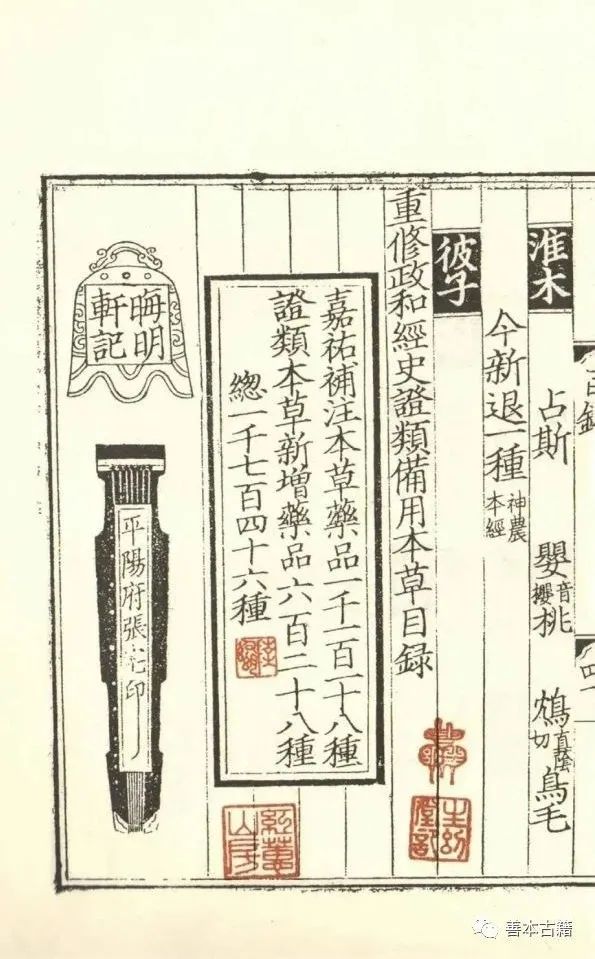 淮木 占斯 嬰音櫻桃 鴆直蔭切鳥毛
今新退一種神農本經
彼子
重修政和經史證類備用本草目録
嘉祐補注本草藥品一千一百一十八種
證類本草新增藥品六百二十八種
緫一千七百四十六種
晦明
軒記
平陽府張宅印
紅蕙
山房
善本古籍